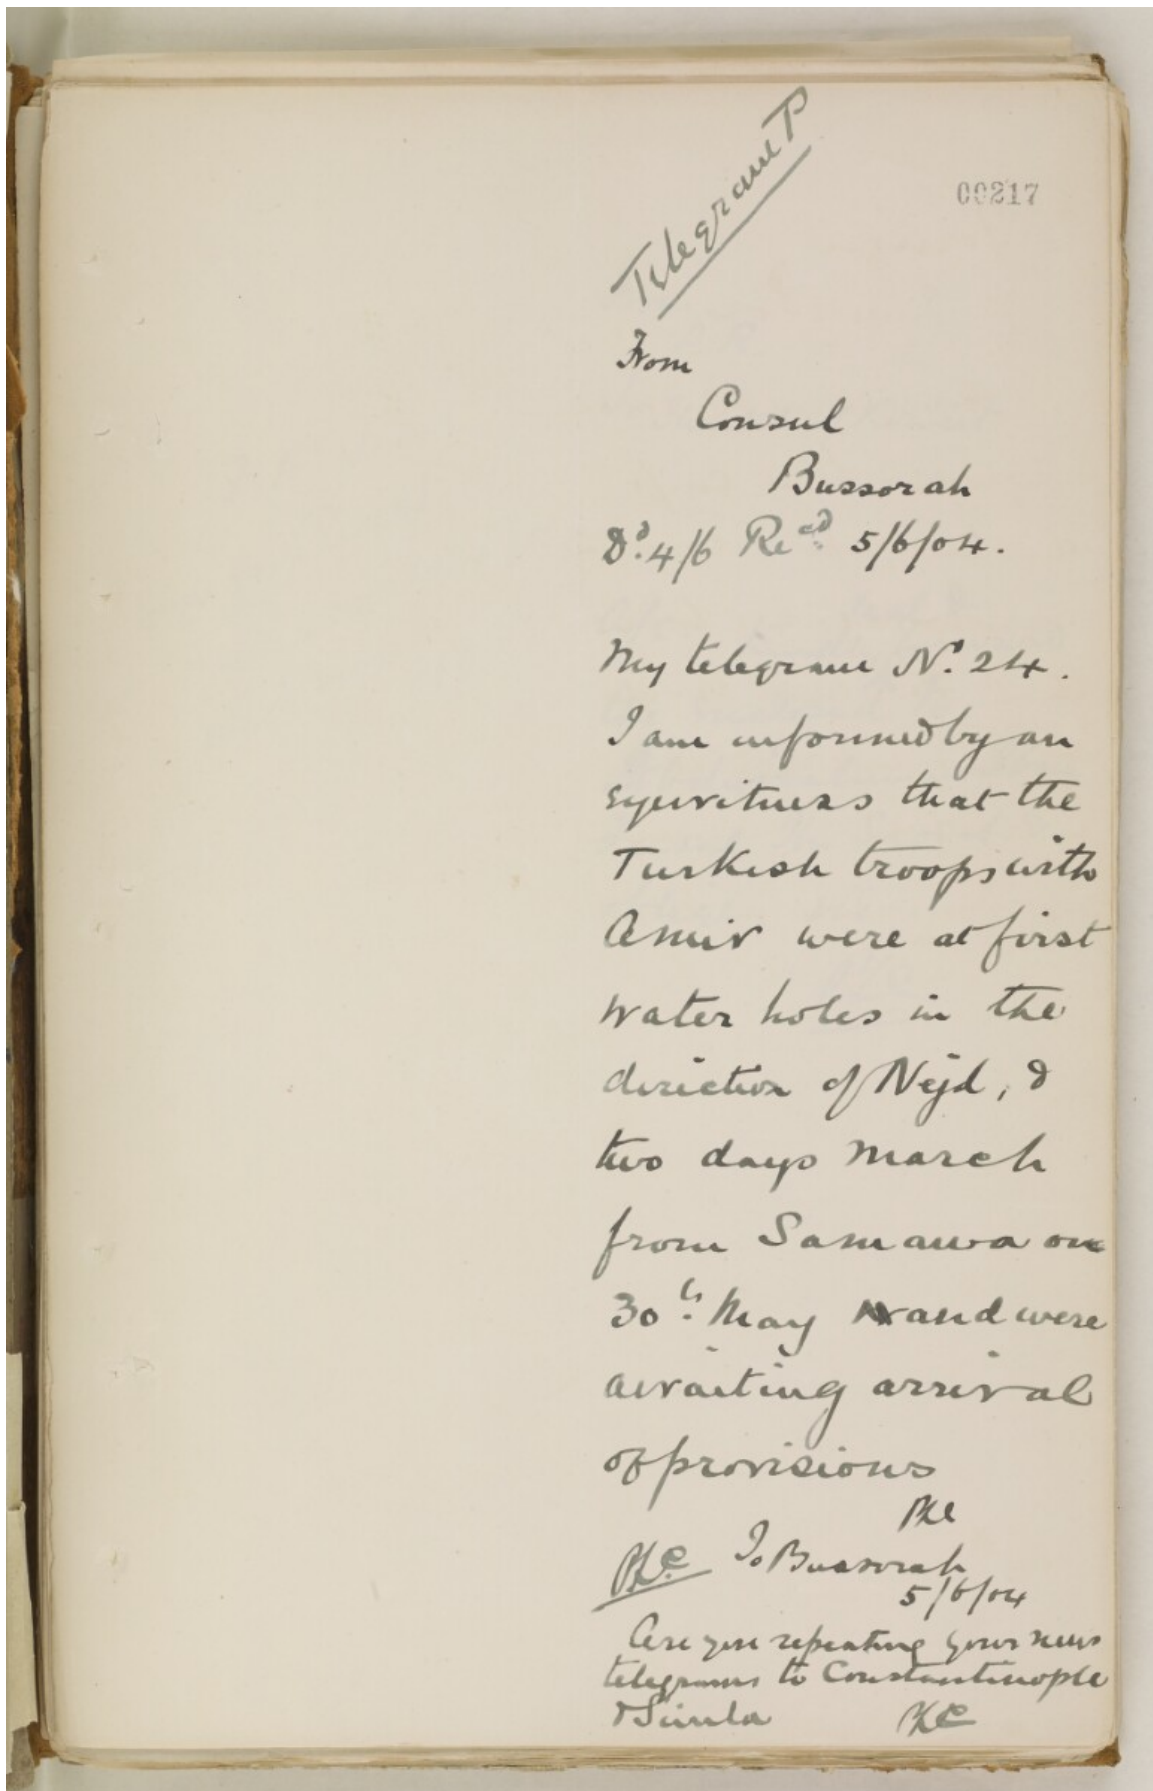 Telegram P
00217
From
Consul
Bussorah
Dd. 4/6 Recd. 5/6/04.
My telegram No. 24.
I am informed by an
eyewitness that the
Turkish troops with
Amir were at first
water holes in the
direction of Nejd, &
two days march
from Samawa on
30th May and were
awaiting arrival
of provisions
To Bussorah
5/6/04
Are you repeating your news
telegrams to Constantinople
& Simla